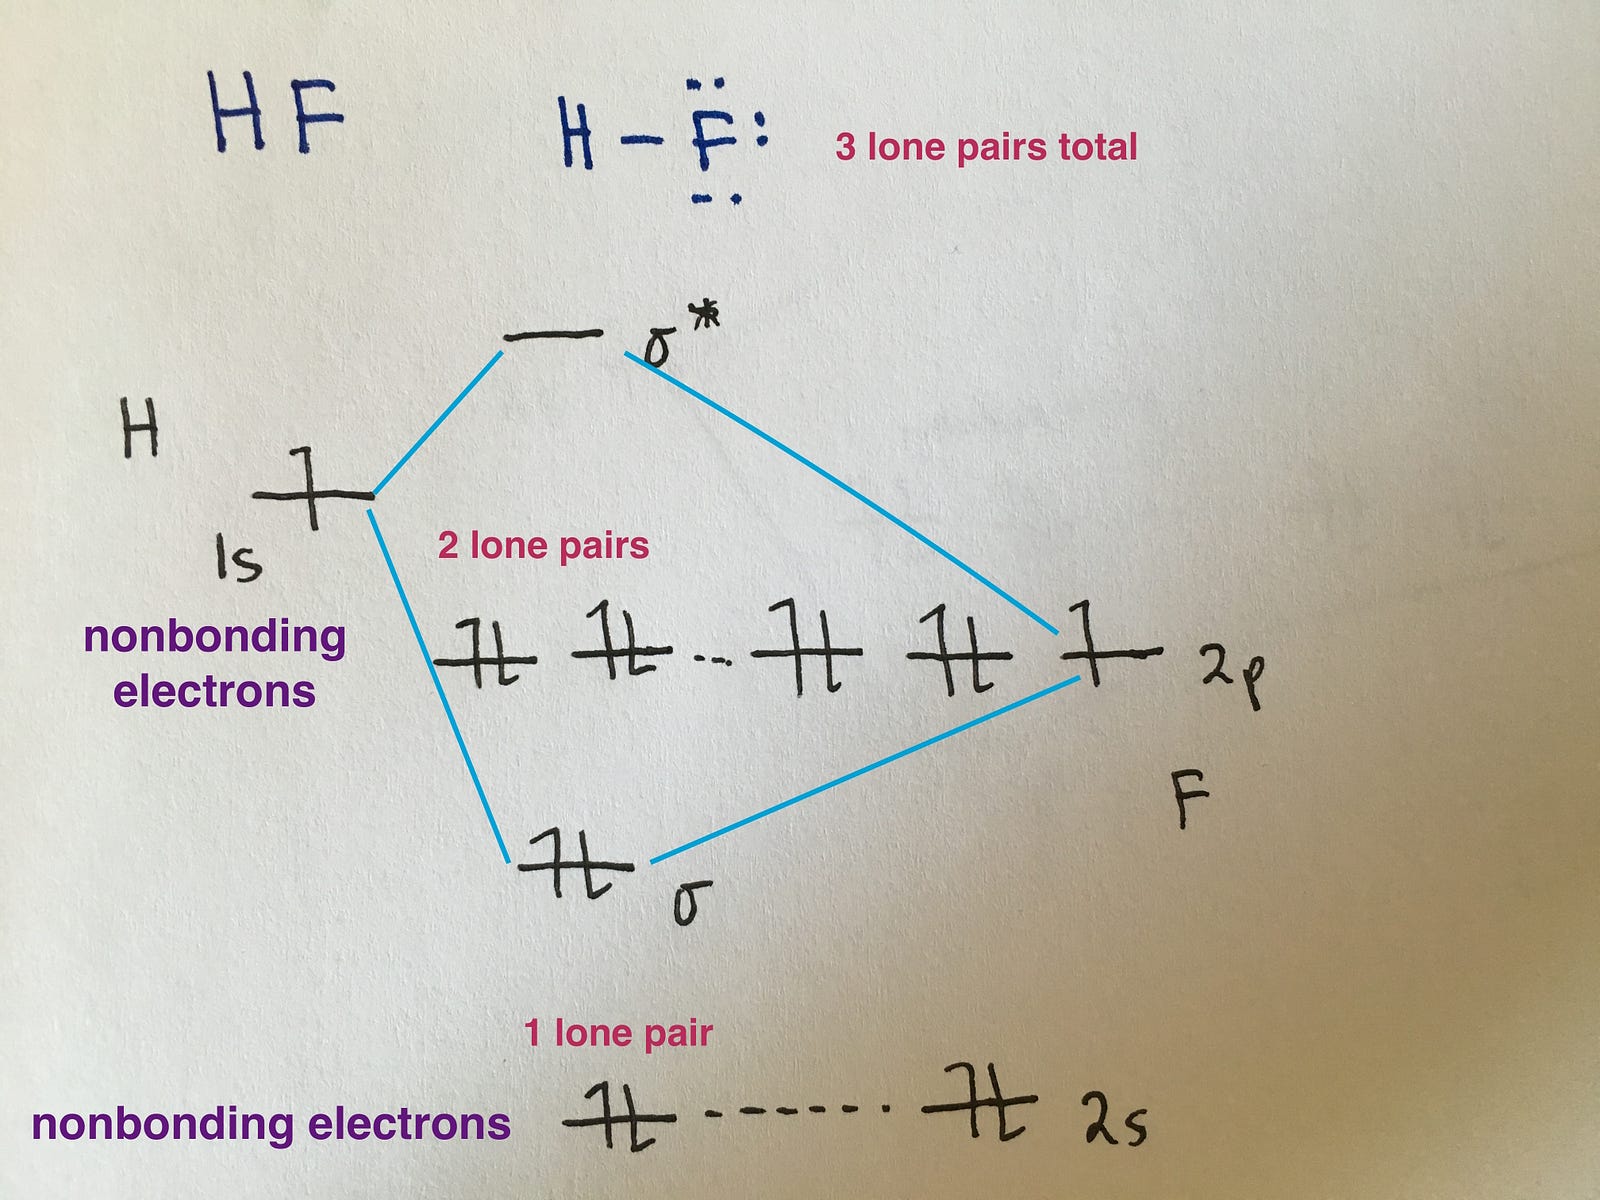 HF
H-F
3 lone pairs total
σ*
H
1s
2 lone pairs
nonbonding
electrons
2p
F
σ
1 lone pair
nonbonding electrons
2s